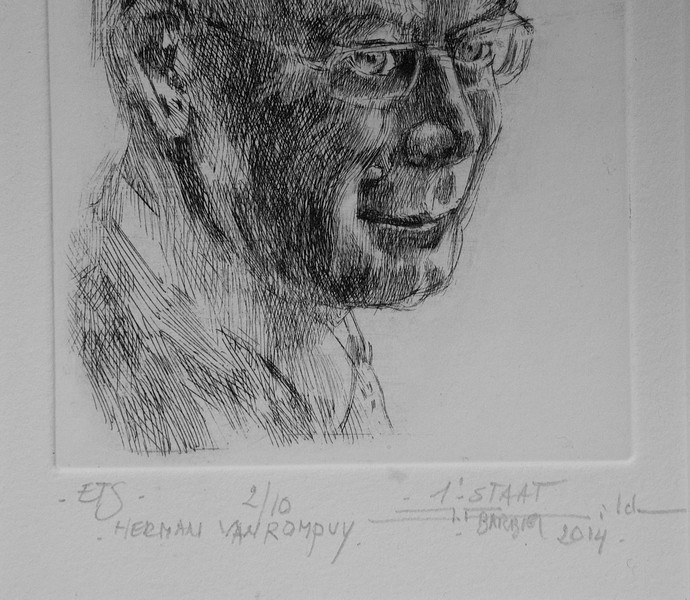 - ETS - 2/10 - 1° STAAT
- HERMAN VAN ROMPUY. - BARBIER 2014.